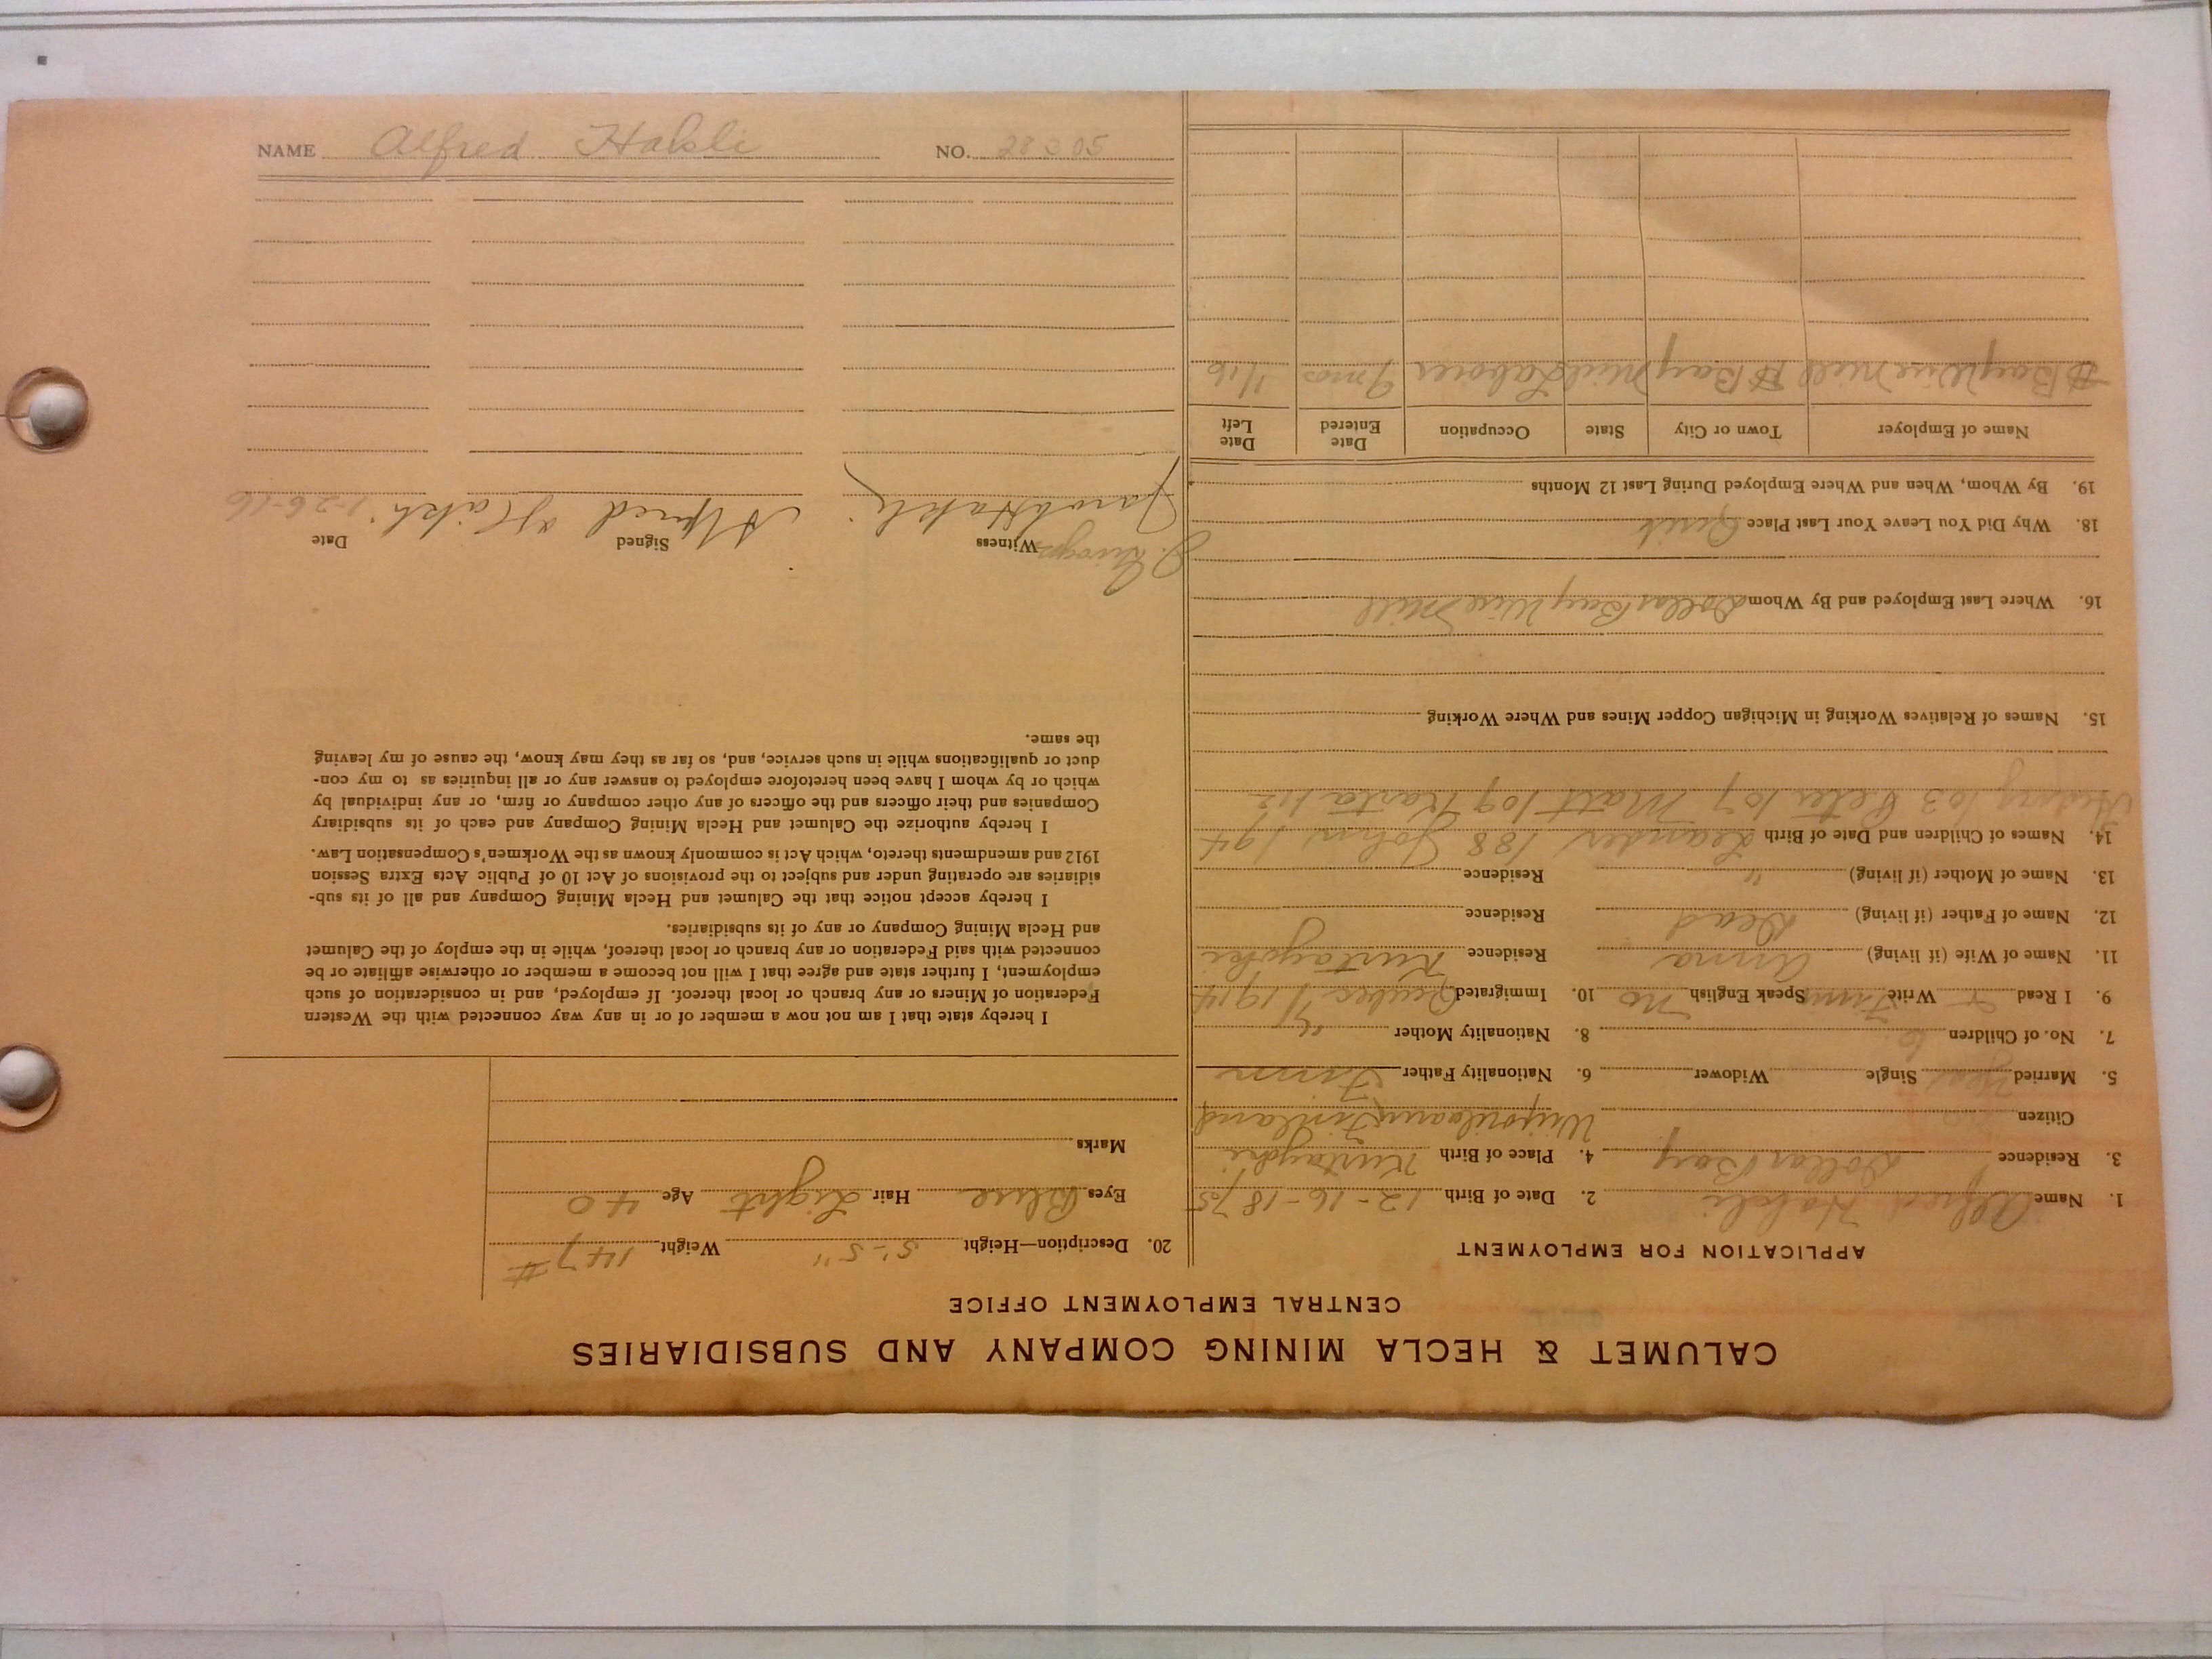 CALUMET & HECLA MINING COMPANY AND SUBSIDIARIES
CENTRAL EMPLOYMENT OFFICE
APPLICATION FOR EMPLOYMENT
1. Name Alfred Hakli 2. Date of Birth 12-16-1875
3. Residence Dollar Bay 4. Place of Birth
Citizen Finland
5. Married Yes Single Widower 6. Nationality Father Finn
7. No. of Children 6 8. Nationality Mother "
9. I Read Write Finn Speak English No 10. Immigrated 1914
11. Name of Wife (if living) Anna Residence
12. Name of Father (if living) Dead Residence
13. Name of Mother (if living) " Residence
14. Names of Children and Date of Birth Leander 188 John 194
103 Peter 107 Matt 109 112
15. Names of Relatives Working in Michigan Copper Mines and Where Working
16. Where Last Employed and By Whom Dollar Bay Wire Mill
18. Why Did You Leave Your Last Place Quit
19. By Whom, When and Where Employed During Last 12 Months
Name of Employer Town or City State Occupation Date Entered Date Left
Bay Wire Mill Bay Mich Laborer 9 mos 1/16
20. Description—Height 5'-5" Weight 147 #
Eyes Blue Hair Light Age 40
Marks
I hereby state that I am not now a member of or in any way connected with the Western
Federation of Miners or any branch or local thereof. If employed, and in consideration of such
employment, I further state and agree that I will not become a member or otherwise affiliate or be
connected with said Federation or any branch or local thereof, while in the employ of the Calumet
and Hecla Mining Company or any of its subsidiaries.
I hereby accept notice that the Calumet and Hecla Mining Company and all of its sub-
sidiaries are operating under and subject to the provisions of Act 10 of Public Acts Extra Session
1912 and amendments thereto, which Act is commonly known as the Workmen's Compensation Law.
I hereby authorize the Calumet and Hecla Mining Company and each of its subsidiary
Companies and their officers and the officers of any other company or firm, or any individual by
which or by whom I have been heretofore employed to answer any or all inquiries as to my con-
duct or qualifications while in such service, and, so far as they may know, the cause of my leaving
the same.
Witness Signed Date
Hakli Alfred Häkli 1-26-16
NAME Alfred Hakli NO. 28305